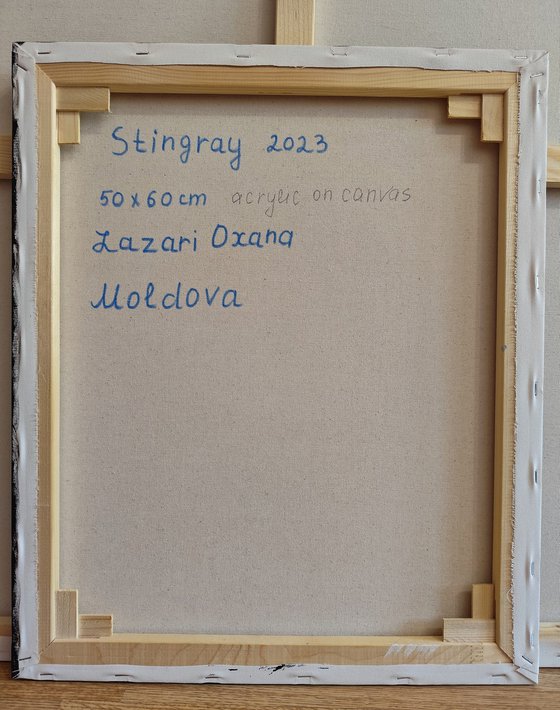 Stingray 2023
50x60cm acrylic on canvas
Lazari Oxana
Moldova